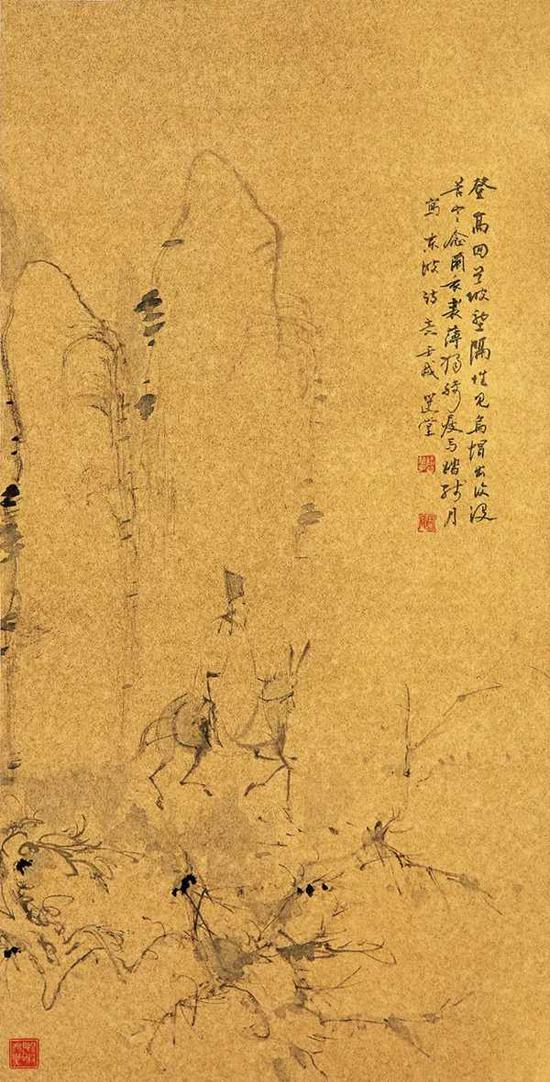 登高回首坡壟隔惟見烏帽出復沒
苦寒念爾衣裘薄獨騎瘦馬踏殘月
寫東坡詩意壬戌選堂